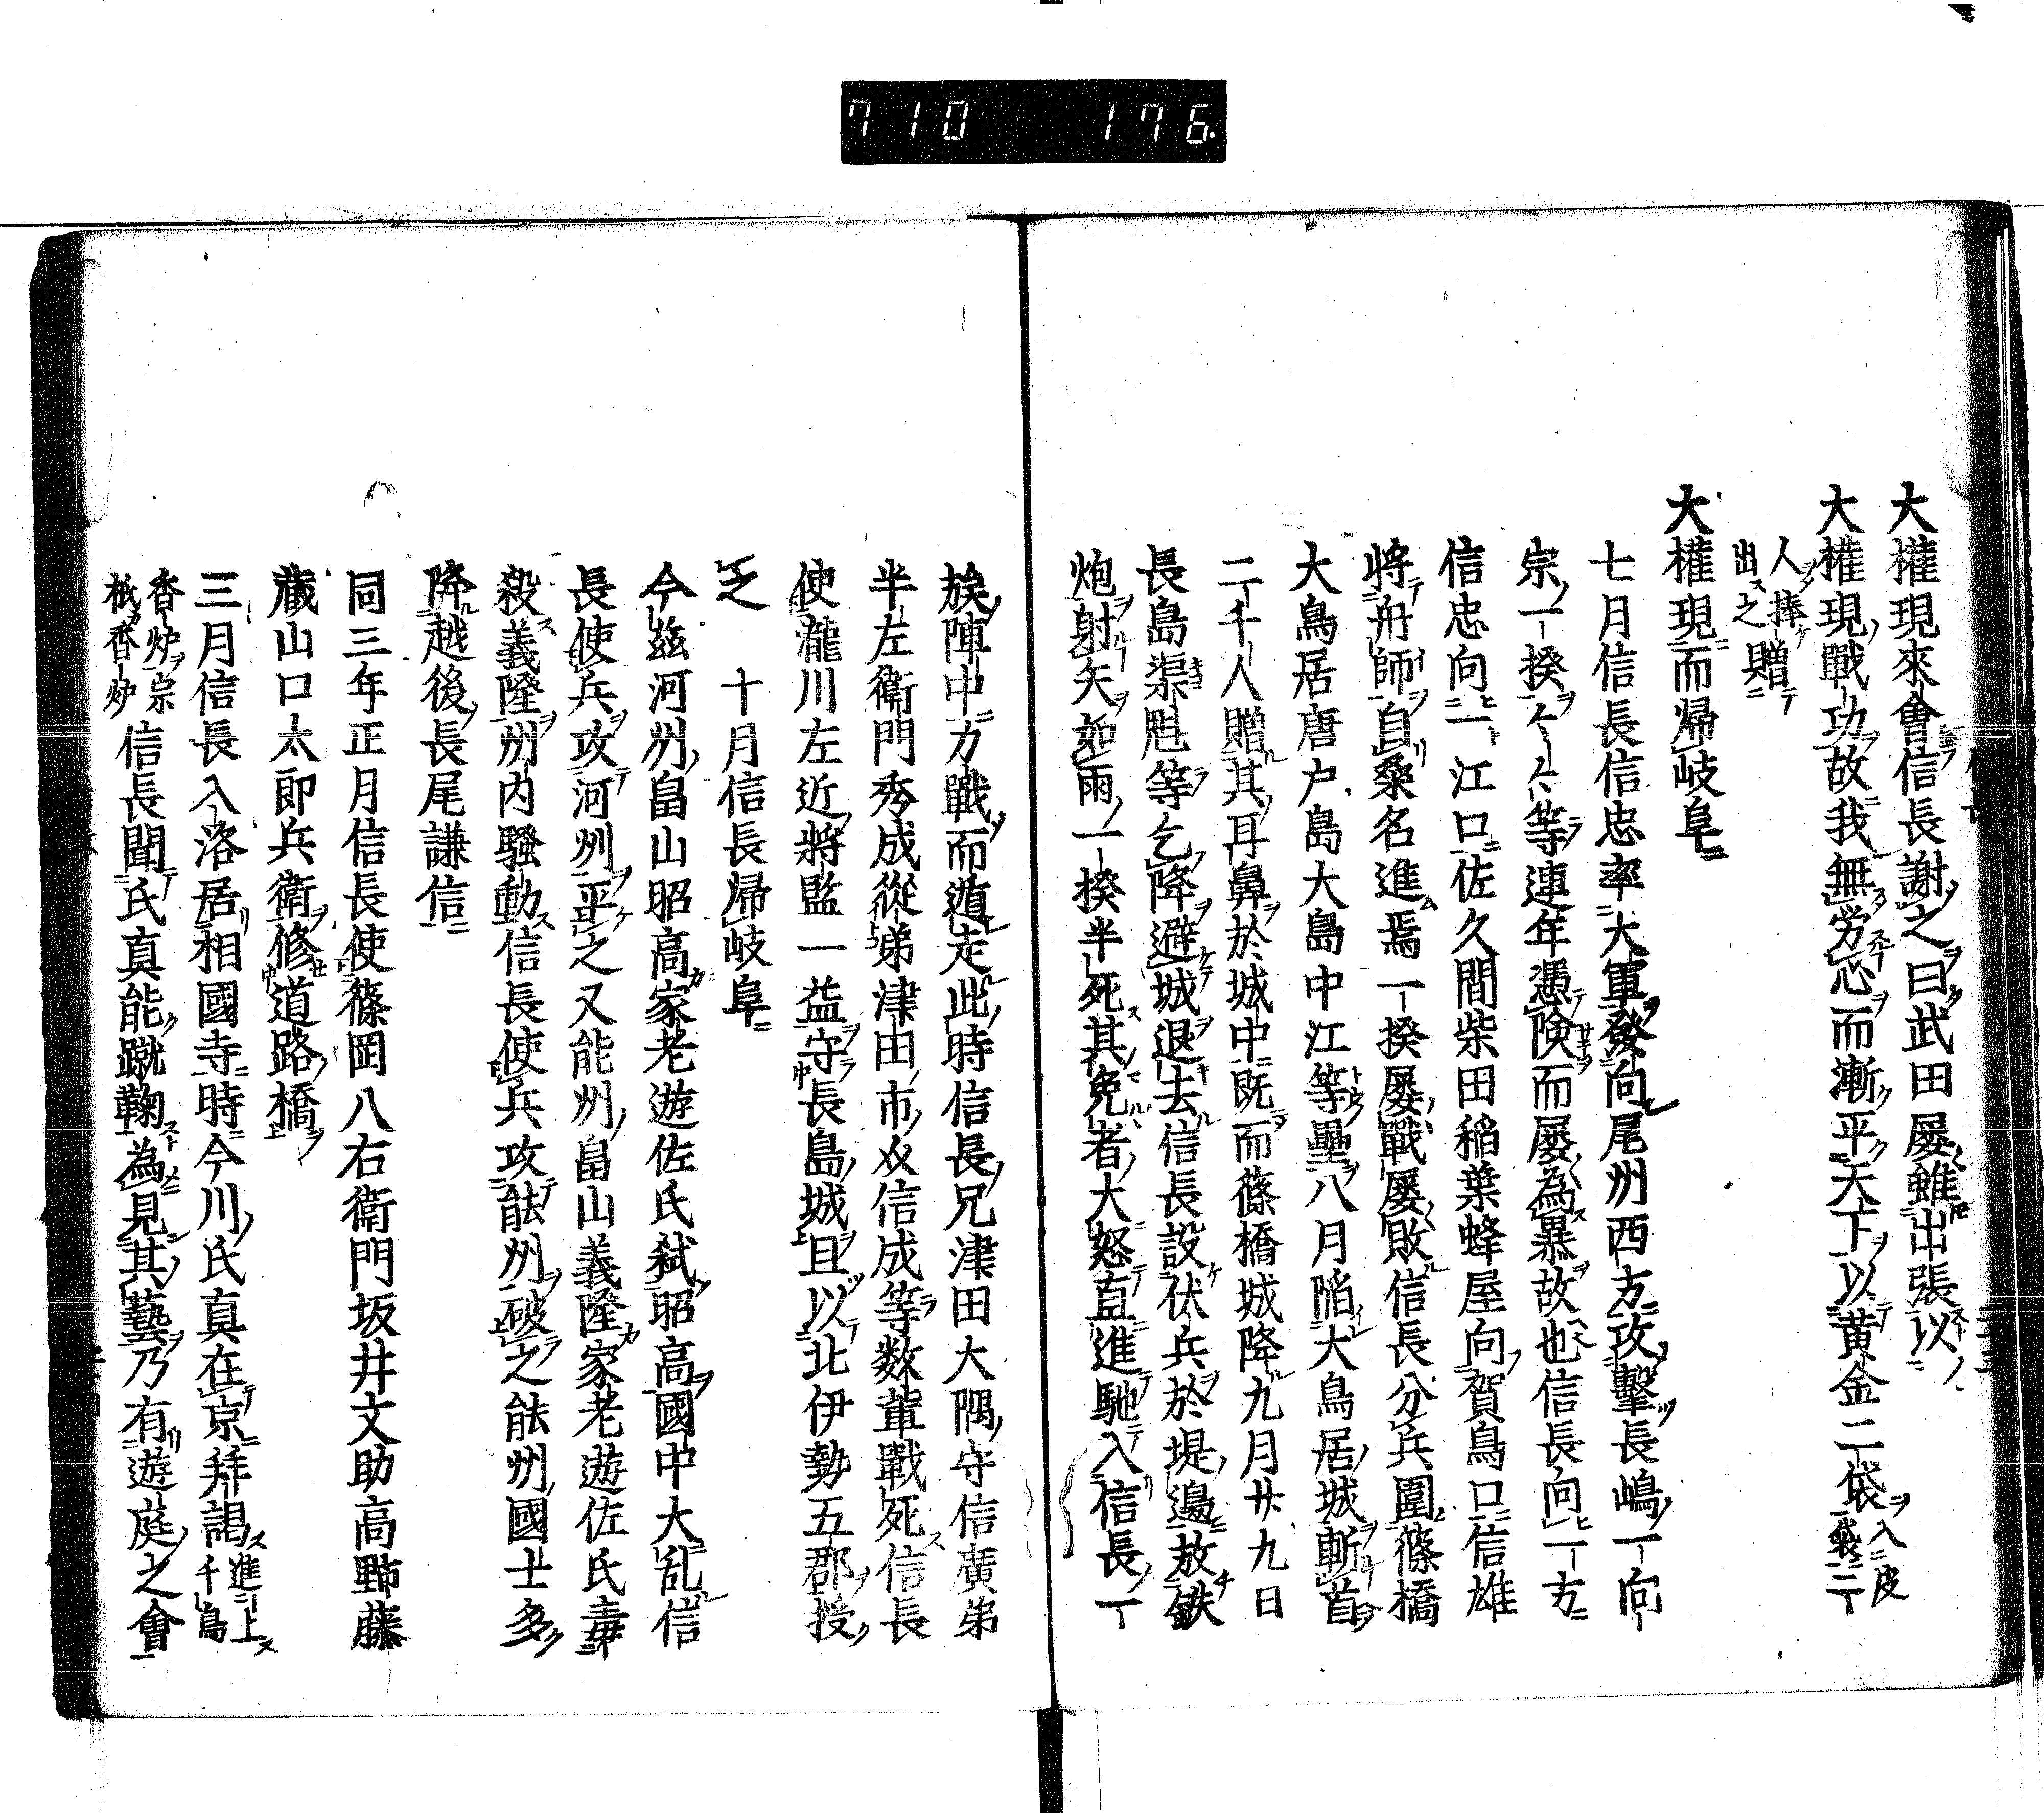 710 176.
大權現來會信長謝之曰武田屡雖出張以
大權現戰功故我無労心而漸平天下以黄金二袋入皮袋二
人捧出之贈
大權現而帰岐阜
七月信長信忠率大軍發向尾州西方攻擊長嶋一向
宗一揆々々等連年憑険而屡為暴故也信長向一方
信忠向一江口佐久間柴田稲葉蜂屋向賀鳥口信雄
將舟師自桑名進焉一揆屡戰屡敗信長分兵圍篠橋
大鳥居唐户島大島中江等壘八月陥大鳥居城斬首
二千人贈其耳鼻於城中既而篠橋城降九月廿九日
長島渠魁等乞降避城退去信長設伏兵於堤邊放鉄
炮射矢如雨一揆半死其免者大怒直進馳入信長一
族陣中力戰而遁走此時信長兄津田大隅守信廣弟
半左衛門秀成從弟津田市信成等数輩戰死信長
使瀧川左近將監一益守長島城且以北伊勢五郡授
之 十月信長帰岐阜
今玆河州畠山昭高家老遊佐氏弑昭高國中大乱信
長使兵攻河州平之又能州畠山義隆家老遊佐氏毒
殺義隆州内騒動信長使兵攻能州破之能州國士多
降越後長尾謙信
同三年正月信長使篠岡八右衛門坂井文助高野藤
藏山口太郎兵衛修道路橋
三月信長入洛居相國寺時今川氏真在京拜謁進上千鳥
香炉宗祇香炉信長聞氏真能蹴鞠為見其藝乃有遊庭之會